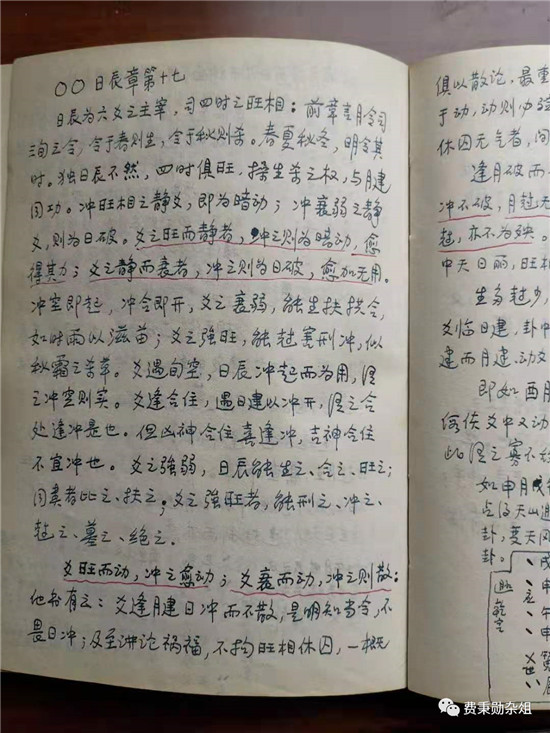 〇〇日辰章第十七
日辰为六爻之主宰，司四时之旺相：前章言月令司
三旬之令，令于春则生，令于秋则杀。春夏秋冬，明令其
时。独日辰不然，四时俱旺，操生杀之权，与月建
同功。冲旺相之静爻，即为暗动；冲衰弱之静
爻，则为日破。爻之旺而静者，冲之则为暗动，愈
得其力；爻之静而衰者，冲之则为日破，愈加无用。
冲空即起，冲合即开，爻之衰弱，能生扶拱合，
如时雨以滋苗；爻之强旺，能尅害刑冲，似
秋霜之杀草。爻遇旬空，日辰冲起而为用，谓
之冲空则实。爻逢合住，遇日建以冲开，谓之合
处逢冲是也。但凶神合住喜逢冲，吉神合住
不宜冲也。爻之强弱，日辰能生之、合之、旺之；
同类者比之、扶之；爻之强旺者，能刑之、冲之、
尅之、墓之、绝之。
爻旺而动，冲之愈动；爻衰而动，冲之则散：
他书有之：爻逢月建日冲而不散，是明知当令，不
畏日冲；及至讲论祸福，不拘旺相休囚，一概
俱以散论，最重
于动，动则
休囚无气者，间
逢月破而
冲不破，月尅无
尅，亦不为殃。
中天日丽，旺相
生多尅少，
爻临日建，卦中
建而月建、动爻
即如酉月
何佚爻中又动
此谓之寡不
如申月戌
占得天山遁
卦，变天风
卦。
遁
乾宫
戌
申
午
申
世
辰
费秉勋杂俎